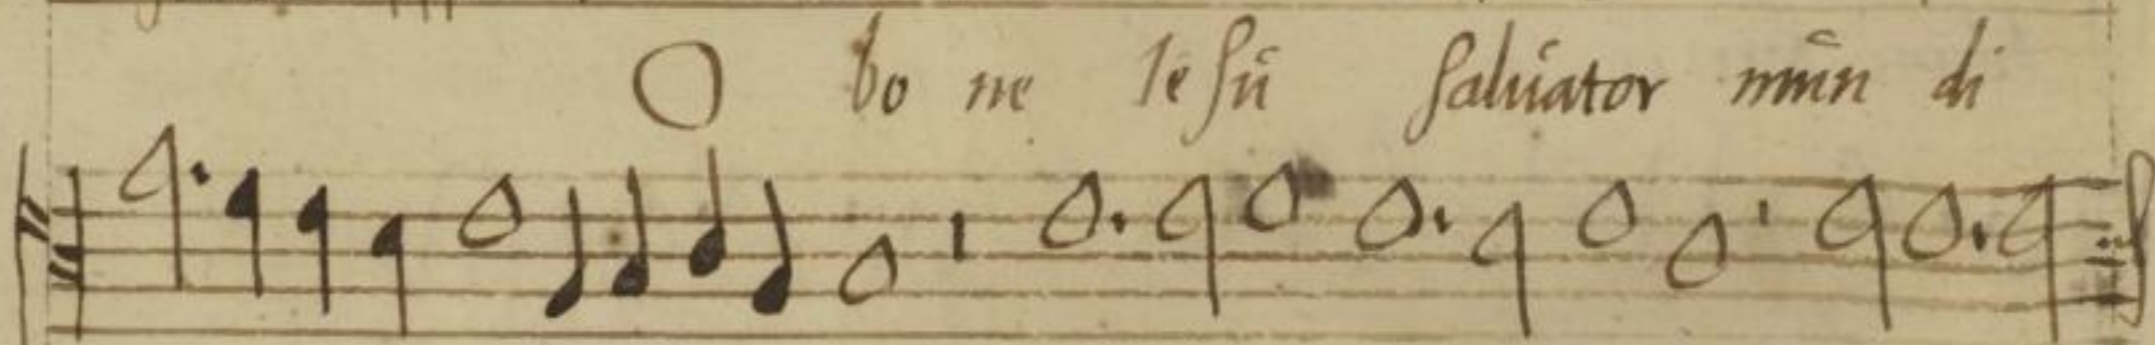 O bo ne Ie sũ saluator mũn di